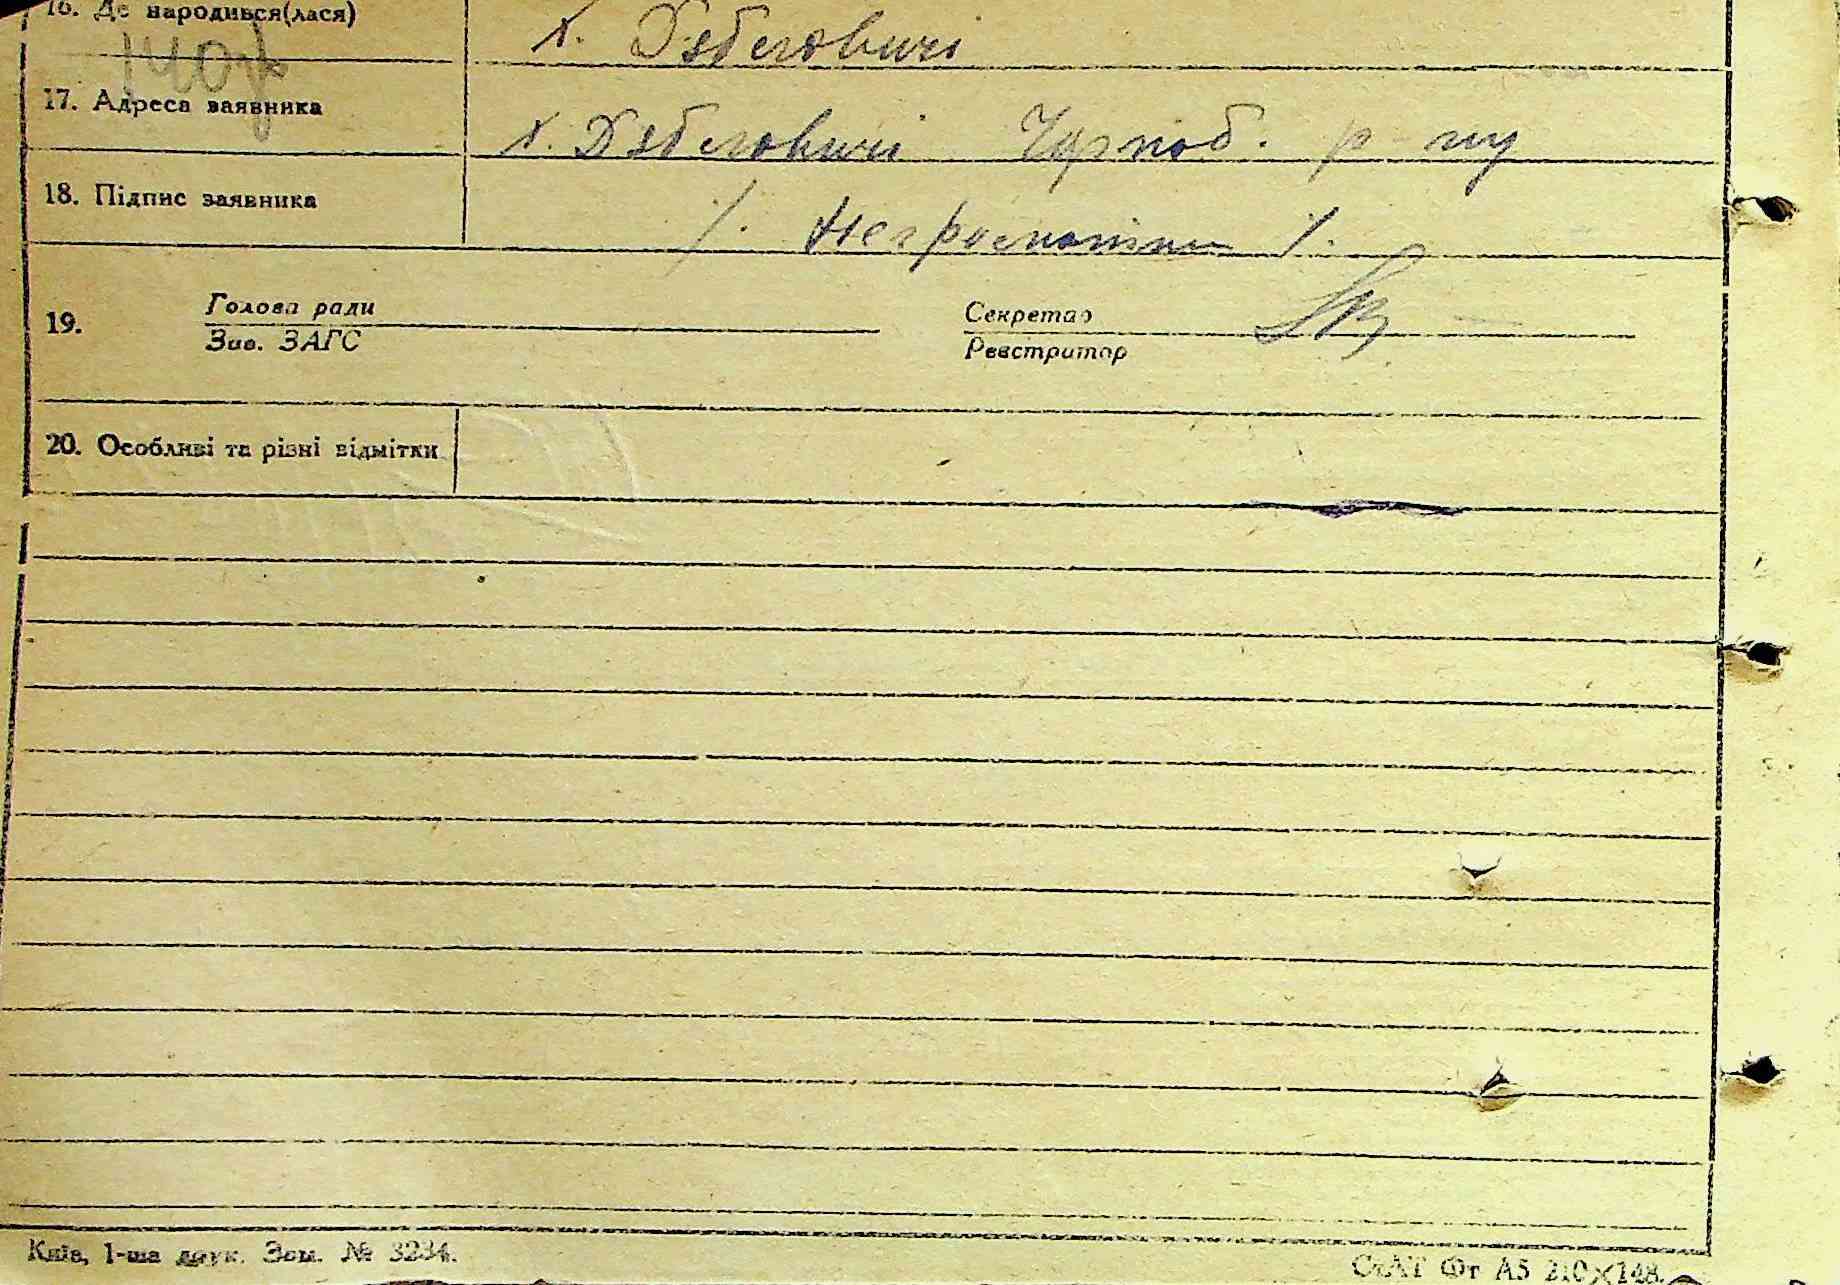 16. Де народився(лася) х.
17. Адреса заявника х. р-ну
18. Підпис заявника /. неграмотна /.
19. Голова ради Секретар
Зав. ЗАГС Реєстратор
20. Особливі та різні відмітки
Київ, 1-ша друк. Зам. № 3234.
СтАТ Фт А5 210×148.